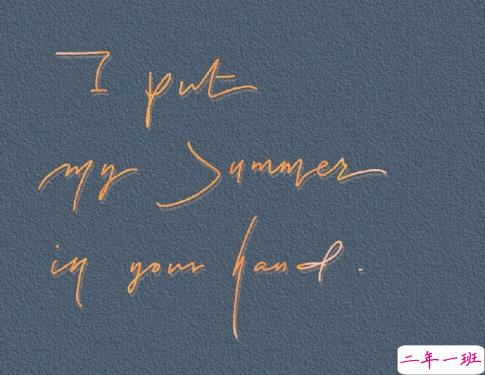 I put
my Summer
in your hand.
二年一班